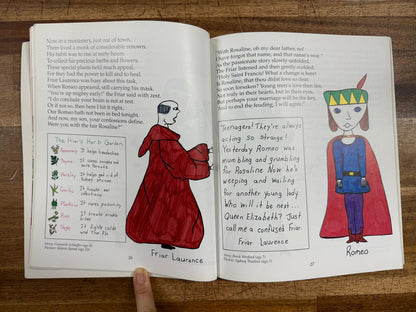 Now in a monastery, just out of town,
There lived a monk of considerable renown.
His habit was to rise at early hours
To collect his precious herbs and flowers.
These special plants held much appeal,
For they had the power to kill and to heal.
Friar Laurence was busy about this task,
When Romeo appeared, still carrying his mask.
"You're up mighty early!" the Friar said with zest.
"I do conclude your brain is not at rest.
Or if not so, then here I hit it right,
Our Romeo hath not been in bed tonight.
And now, my son, your confessions define.
Were you with the fair Rosaline?"
The Friar's Herb Garden
Rosemary
Thyme
Parsley
Garlic
Plantain
Rue
Sage
Friar Laurence
26
"With Rosaline, oh my dear father, no!
I have forgot that name, and that name's woe."
As the passionate story slowly unfolded,
The Friar listened and then gently scolded,
"Holy Saint Francis! What a change is here!
Is Rosaline, that thou didst love so dear,
So soon forsaken? Young men's love then lies,
Not truly in their hearts, but in their eyes.
But perhaps your marriage will be the key,
To end the feuding, I will agree."
Teenagers! They're always
acting so strange!
Yesterday Romeo was
mumbling and grumbling
for Rosaline. Now he's
weeping and wailing
for another young lady.
Who will it be next...
Queen Elizabeth? Just
call me a confused Friar.
Friar Laurence
Romeo
27